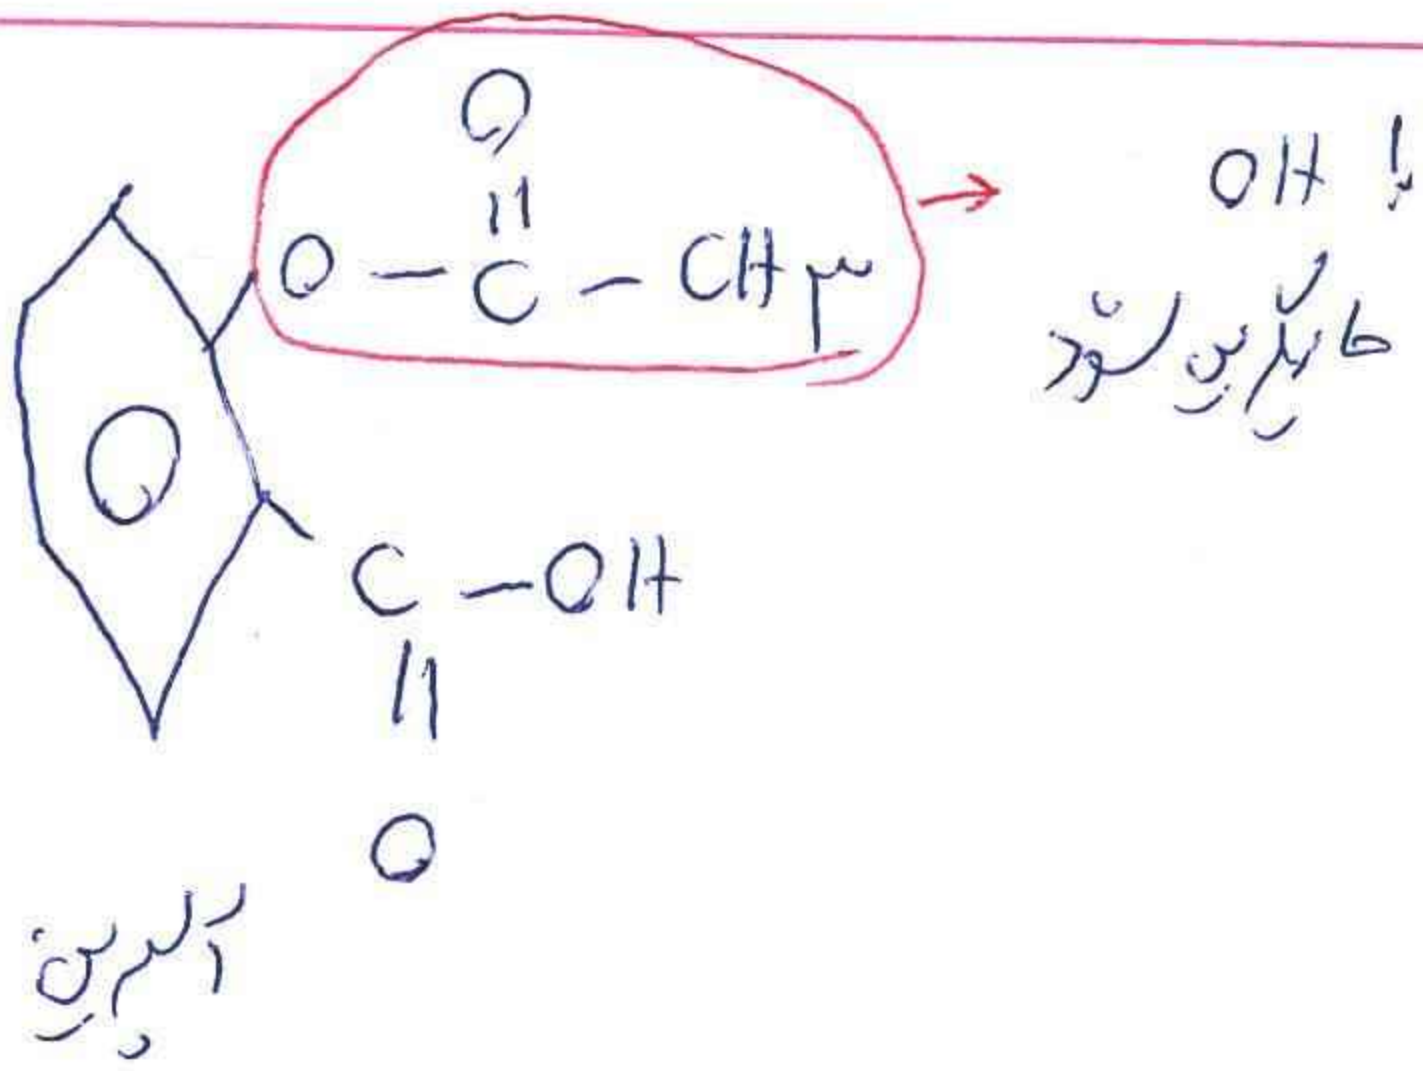 O
||
O — C — CH۳
با OH
جایگزین شود
O
C — OH
||
O
آسپرین